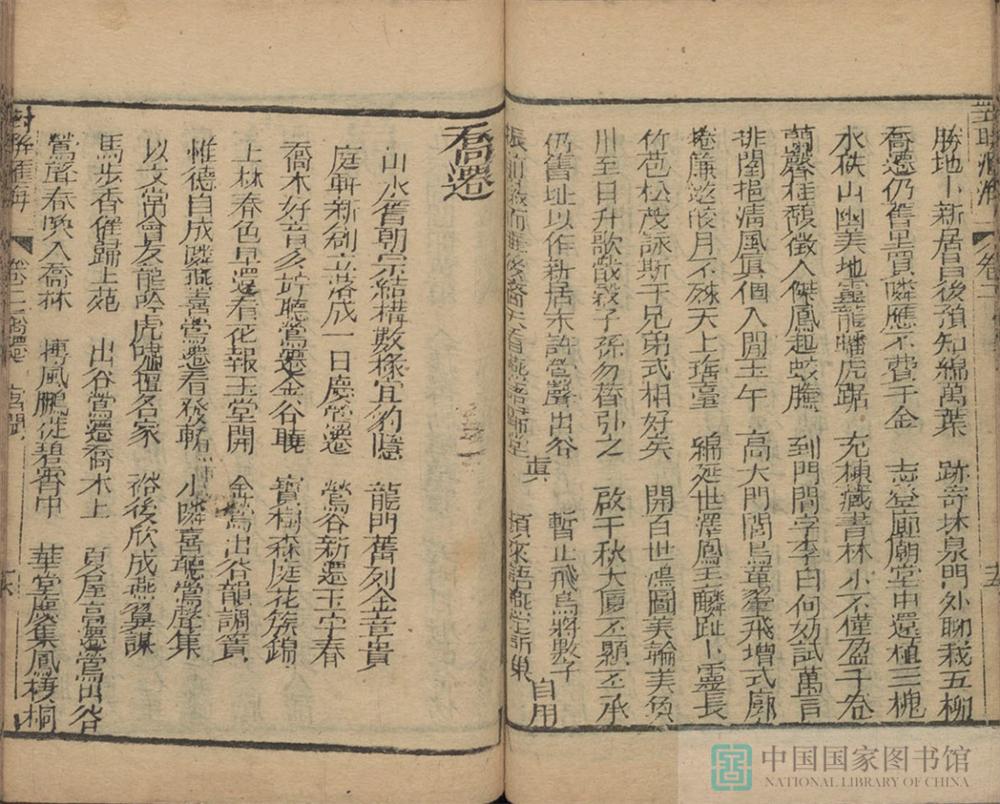 勝地卜新居昌後預知綿萬葉　跡奇林泉門外聊栽五柳
喬遷仍舊里買隣應不費千金　志登廊廟堂中還植三槐
水秩山幽美地靈龍蟠虎踞　充棟藏書林小不僅盈千卷
蘭馨桂馥徵人傑鳳起蛟騰　到門問字李白何妨試萬言
排闥挹淸風眞個入間玉午　高大門閭鳥革翬飛增式廓
捲簾邀皎月不殊天上瑤臺　綿延世澤鳳毛麟趾卜靈長
竹苞松茂詠斯干兄弟式相好矣　開百世鴻圖美輪美奐
川至日升歌戩穀子孫勿替引之　啟千秋大厦丕顯丕承
仍舊址以作新居未許鶯聲出谷　暫止飛鳥將數子
頻來語燕定新巢　自用
喬遷
山水舊朝宗結構數椽宜豹隱　龍門舊列金章貴
庭軒新創立落成一日慶鶯遷　鶯谷新遷玉宇春
喬木好音多好聽鶯遷金谷曉　寶樹森庭花簇錦
上林春色早還看花報玉堂開　金鶯出谷韻調簧
惟德自成隣燕喜鶯遷看發軔　小隣喜聽鶯聲集
以文常會友龍吟虎嘯擅名家　裕後欣成燕翼謀
馬步香催歸上苑　出谷鶯遷喬木上　夏屋高遷鶯出谷
鶯聲春喚入喬林　摶風鵬徙碧霄中　華堂慶集鳳棲桐
卷二
中国国家图书馆
NATIONAL LIBRARY OF CHINA